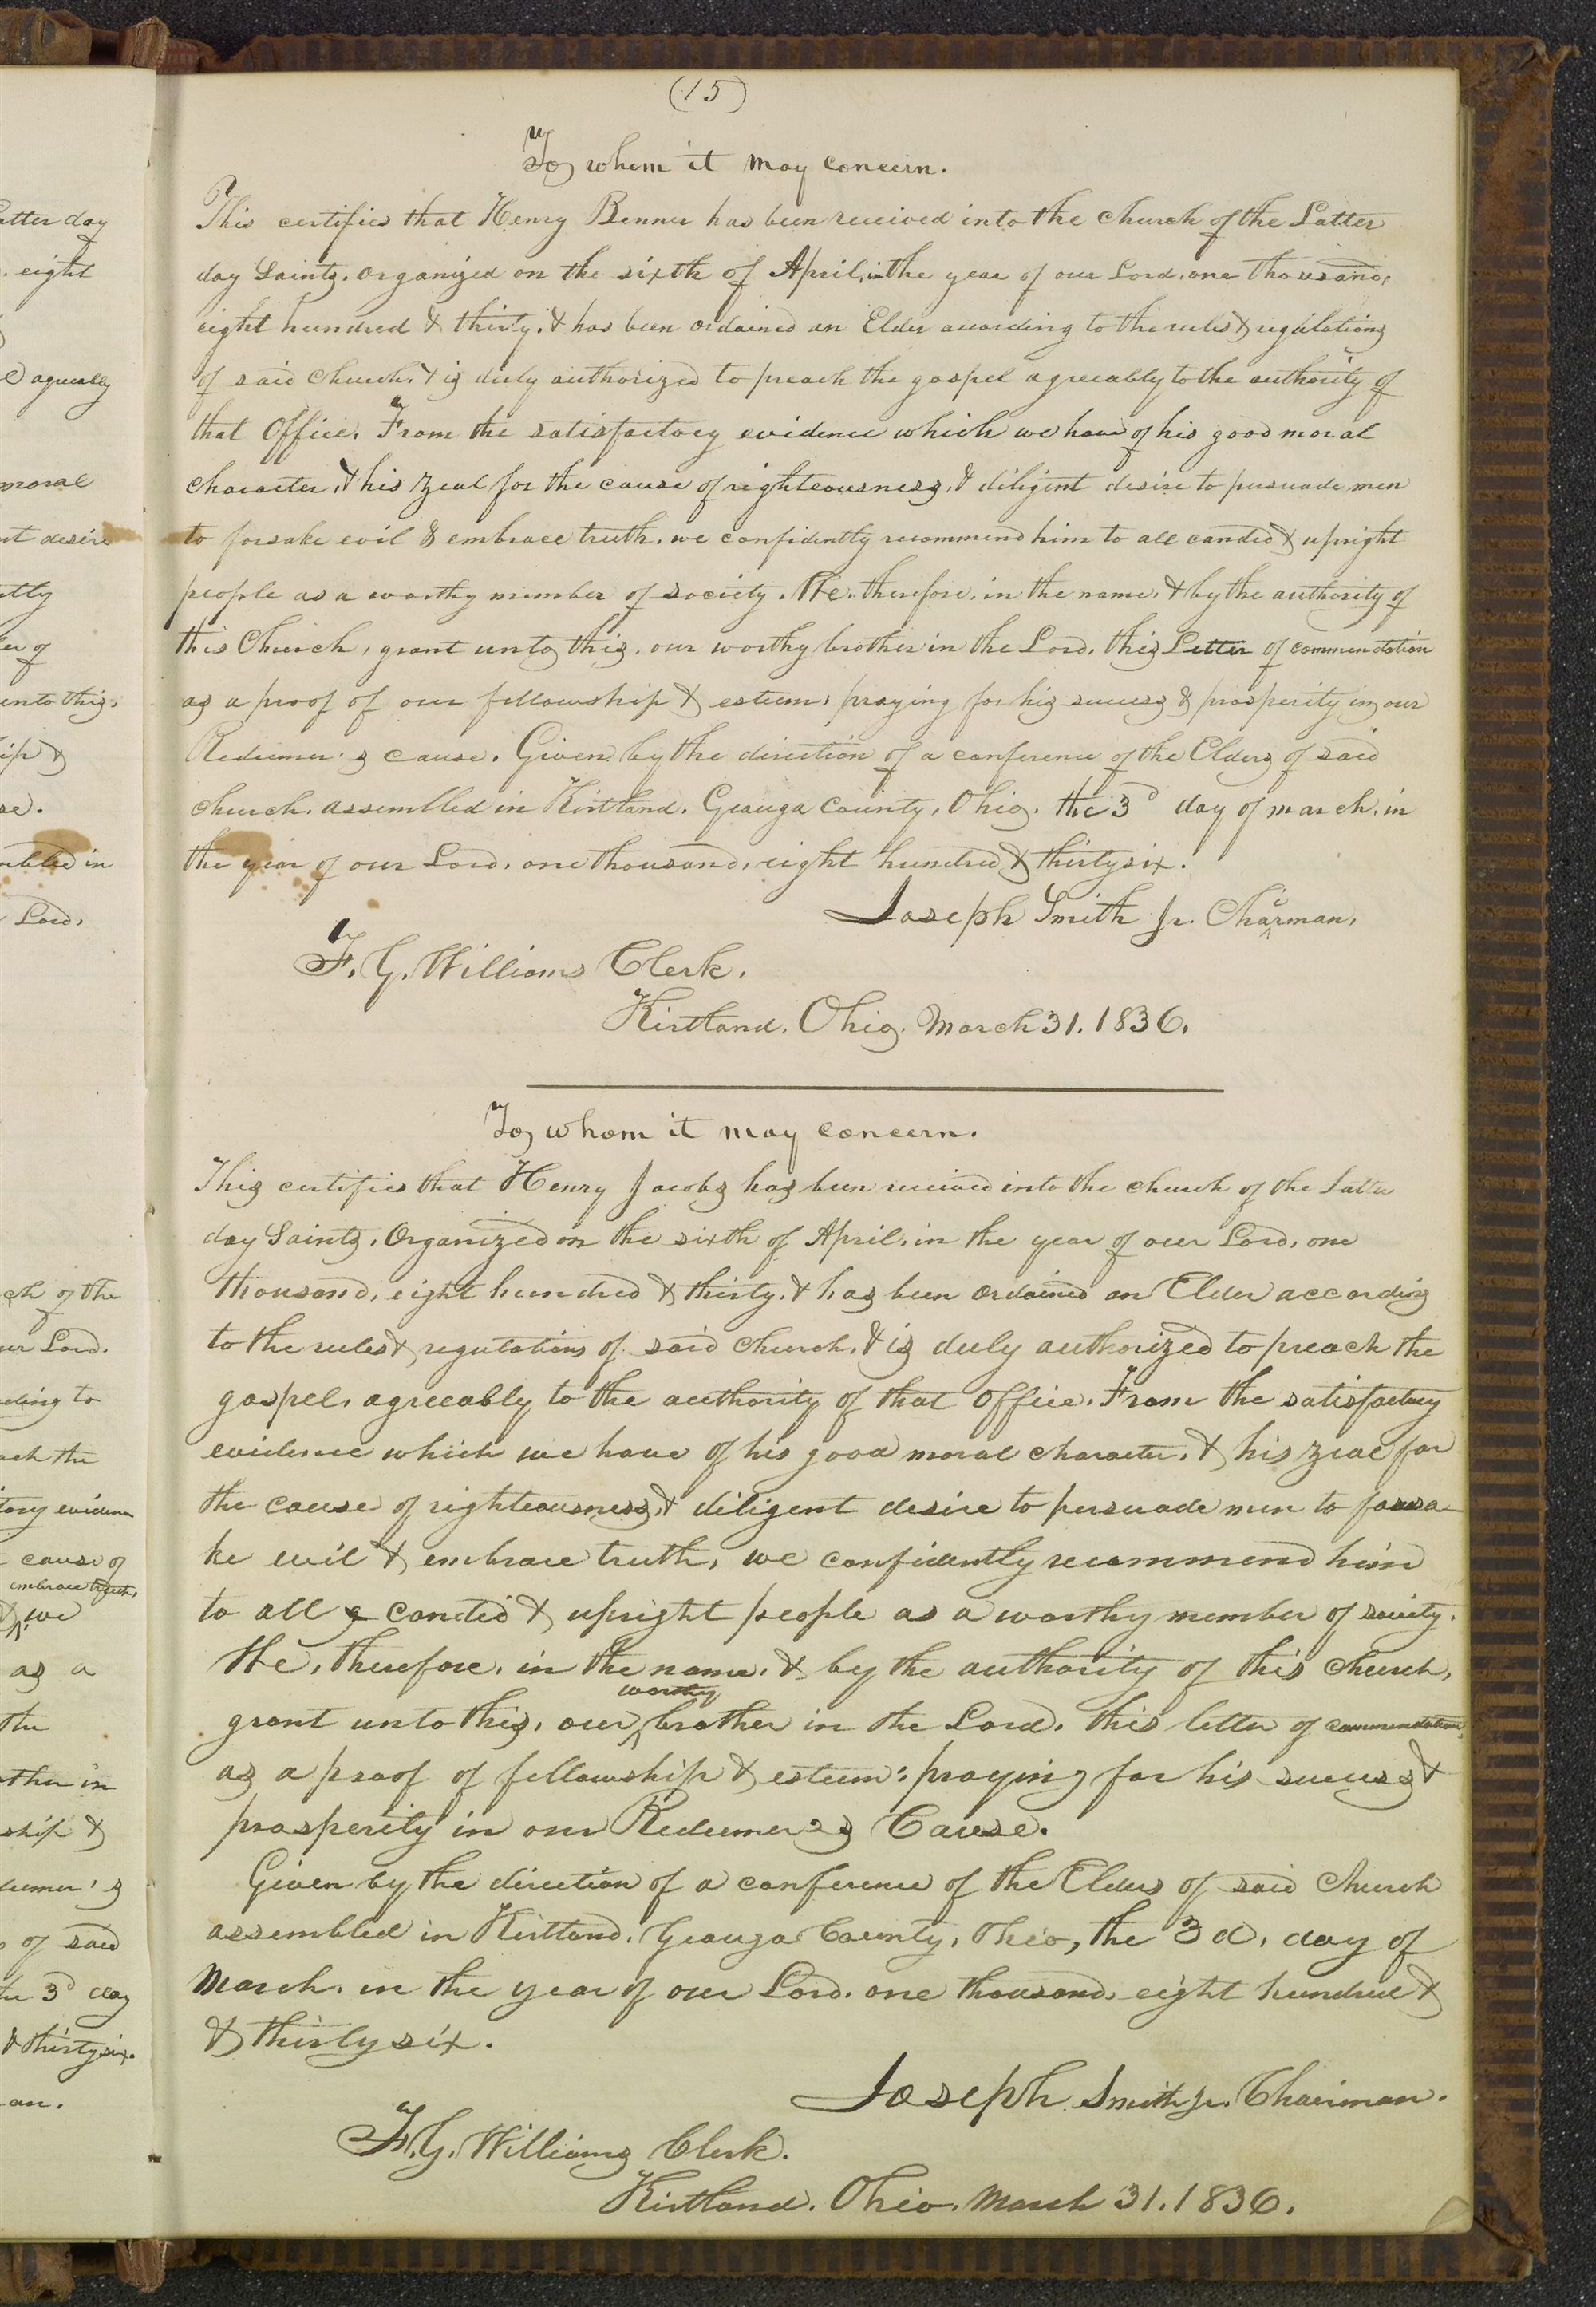 (15)
To whom it may concern.
This certifies that Henry Benner has been received into the church of the Latter
day Saints, organized on the sixth of April, in the year of our Lord, one thousand,
eight hundred & thirty, & has been ordained an Elder according to the rules & regulations
of said church, & is duly authorized to preach the gospel agreeably to the authority of
that Office. From the satisfactory evidence which we have of his good moral
character, & his zeal for the cause of righteousness, & diligent desire to persuade men
to forsake evil & embrace truth, we confidently recommend him to all candid & upright
people as a worthy member of society. We, therefore, in the name, & by the authority of
this Church, grant unto this, our worthy brother in the Lord, this Letter of commendation
as a proof of our fellowship & esteem, praying for his success & prosperity in our
Redeemer's cause. Given by the direction of a conference of the Elders of said
church, assembled in Kirtland, Geauga County, Ohio, the 3d day of march, in
the year of our Lord, one thousand, eight hundred & thirty six.
Joseph Smith Jr. Chairman,
F. G. Williams Clerk.
Kirtland, Ohio, March 31, 1836.
To whom it may concern.
This certifies that Henry Jacobs has been received into the church of the Latter
day Saints, Organized on the sixth of April, in the year of our Lord, one
thousand, eight hundred & thirty, & has been ordained an Elder according
to the rules & regulations of said church, & is duly authorized to preach the
gospel, agreeably to the authority of that Office. From the satisfactory
evidence which we have of his good moral character, & his zeal for
the cause of righteousness, & diligent desire to persuade men to forsa-
ke evil & embrace truth, we confidently recommend him
to all candid & upright people as a worthy member of society.
We, therefore, in the name, & by the authority of this church,
grant unto this, our worthy brother in the Lord, this letter of commendation,
as a proof of fellowship & esteem: praying for his success &
prosperity in our Redeemer's Cause.
Given by the direction of a conference of the Elders of said Church
assembled in Kirtland, Geauga County, Ohio, the 3d, day of
March, in the year of our Lord, one thousand, eight hundred &
& thirty six.
Joseph Smith Jr. Chairman.
F. G. Williams Clerk.
Kirtland, Ohio, March 31, 1836.